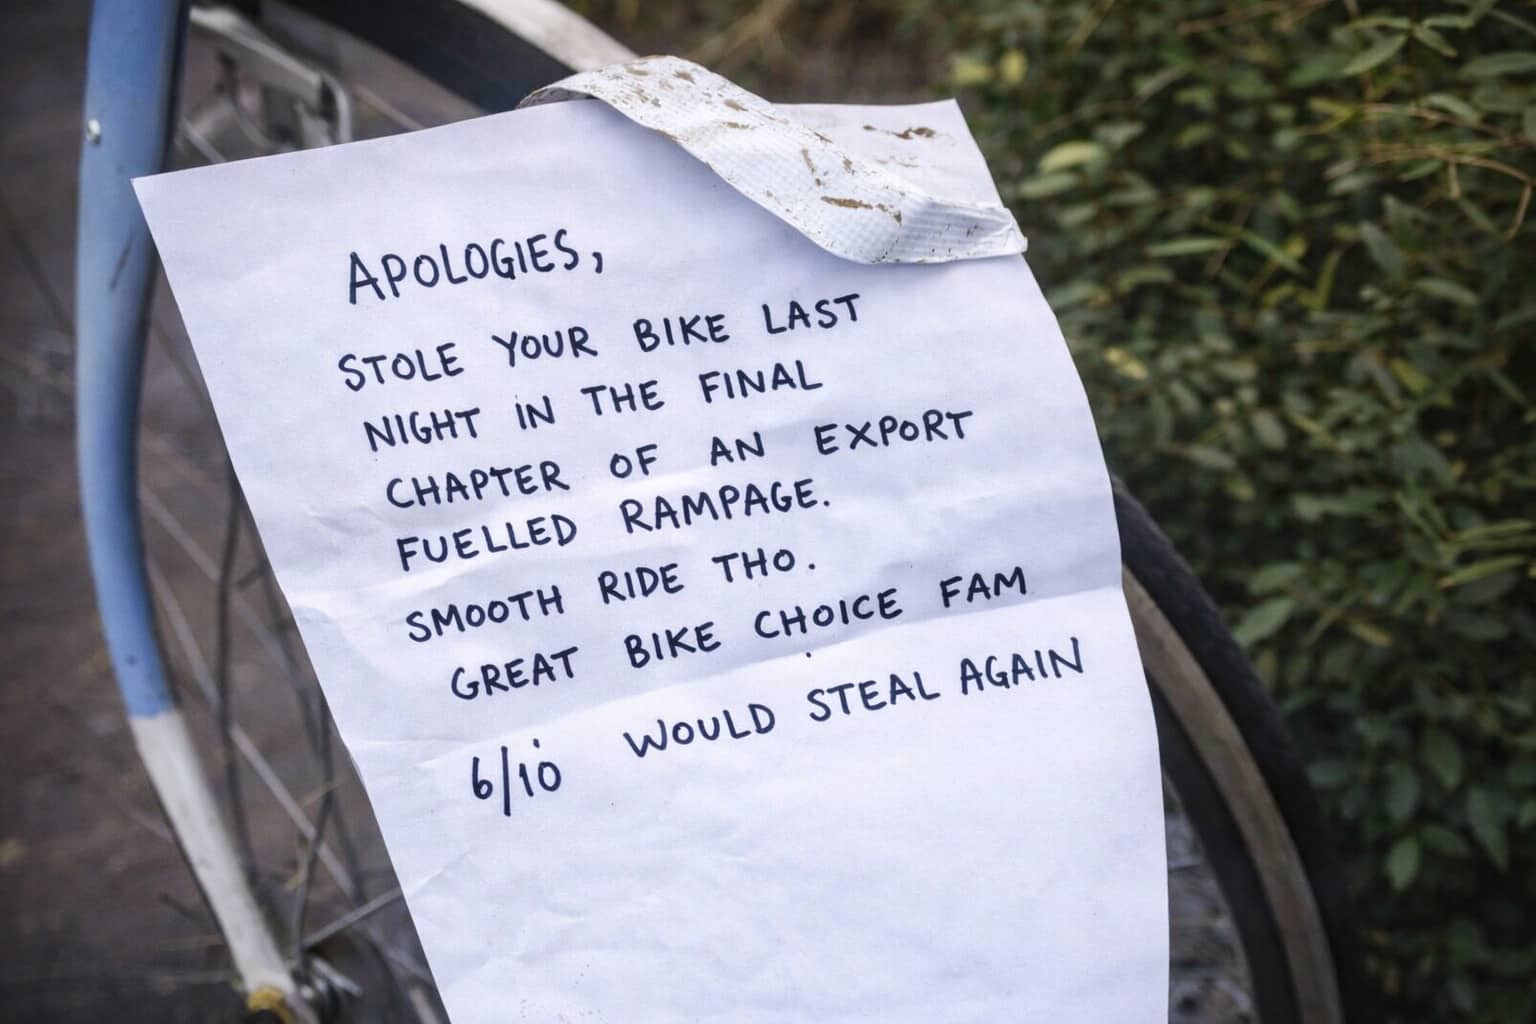 APOLOGIES,
STOLE YOUR BIKE LAST
NIGHT IN THE FINAL
CHAPTER OF AN EXPORT
FUELLED RAMPAGE.
SMOOTH RIDE THO.
GREAT BIKE CHOICE FAM
6/10 WOULD STEAL AGAIN